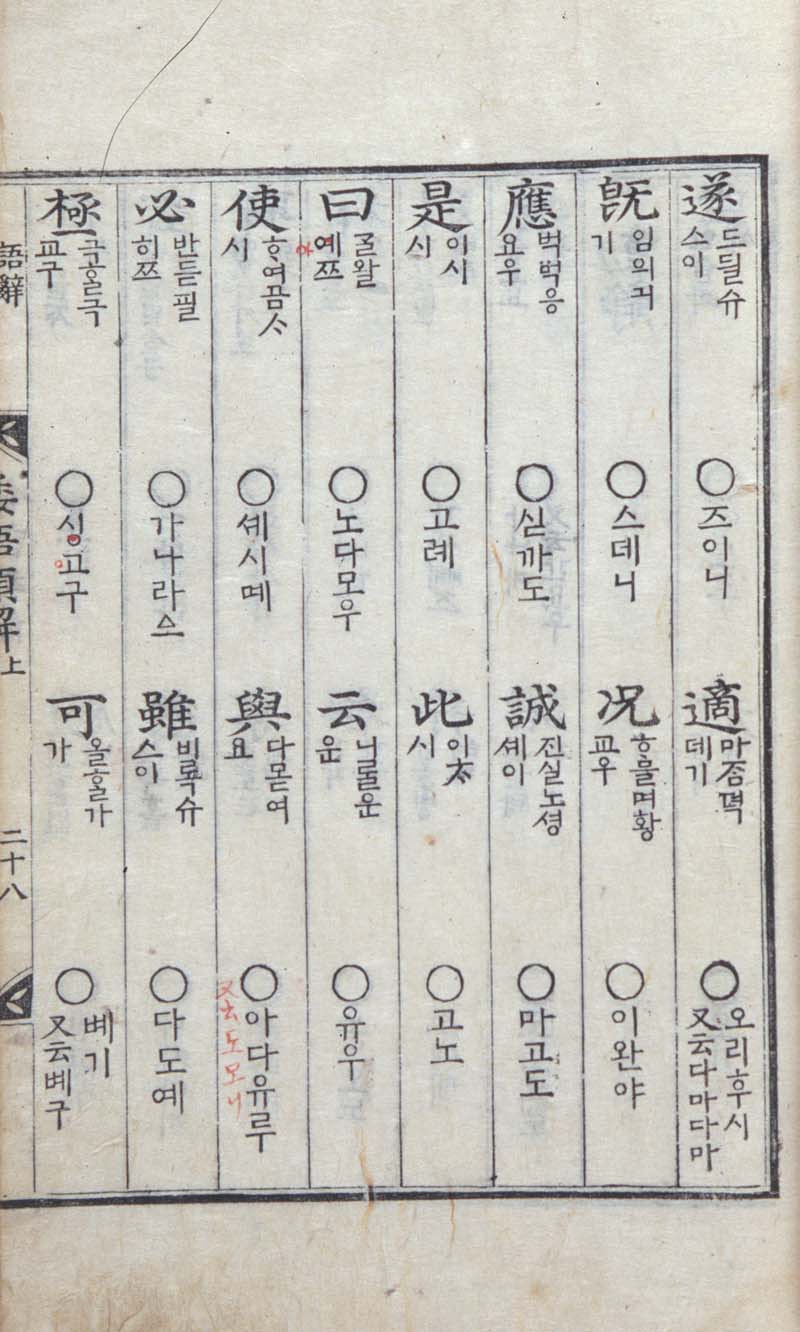 遂 드딜슈
스이
○즈이니
適 마좀뎍
데기
○오리ᄒᆞ우시
又云다마다마
旣 임의긔
기
○스데니
况 ᄒᆞ믈며황
교우
○이완야
應 벅벅응
요우
○싣까도
誠 진실노셩
셰이
○마고도
是 이시
시
○고례
此 이ᄎᆞ
시
○고노
曰 ᄀᆞᆯ왈
예쯔
○노다모우
云 니ᄅᆞᆯ운
운
○유우
使 ᄒᆞ여곰ᄉᆞ
시
○셰시몌
與 다몯여
요
○아다유루
又云도모니
必 반듣필
히쯔
○가나라스
雖 비록슈
스이
○다도예
極 극ᄒᆞᆯ극
교구
○싱고구
可 올ᄒᆞᆯ가
가
○볘기
又云볘구
語辭
倭語類解上
二十八